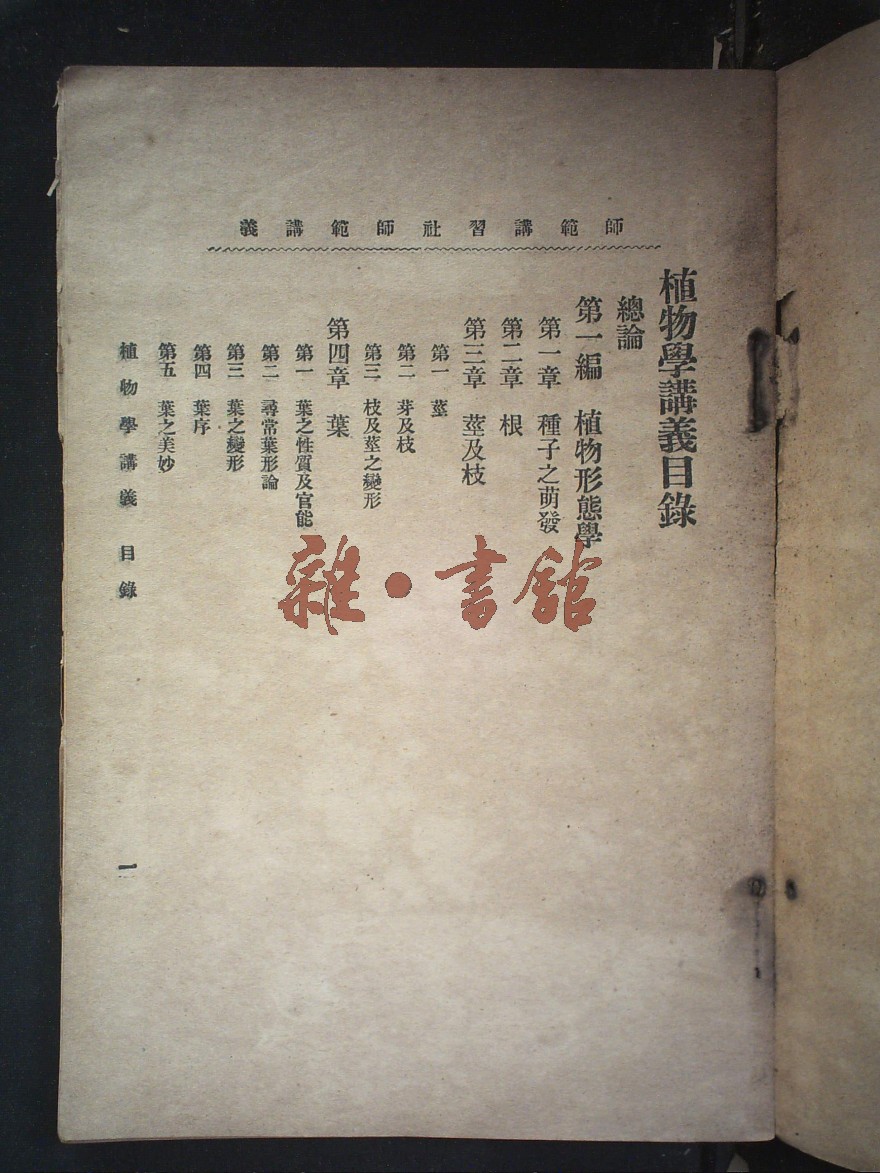 師範講習社師範講義
植物學講義目錄
總論
第一編 植物形態學
第一章 種子之萌發
第二章 根
第三章 莖及枝
第一 莖
第二 芽及枝
第三 枝及莖之變形
第四章 葉
第一 葉之性質及官能
第二 尋常葉形論
第三 葉之變形
第四 葉序
第五 葉之美妙
植物學講義 目錄
一
雜·書館